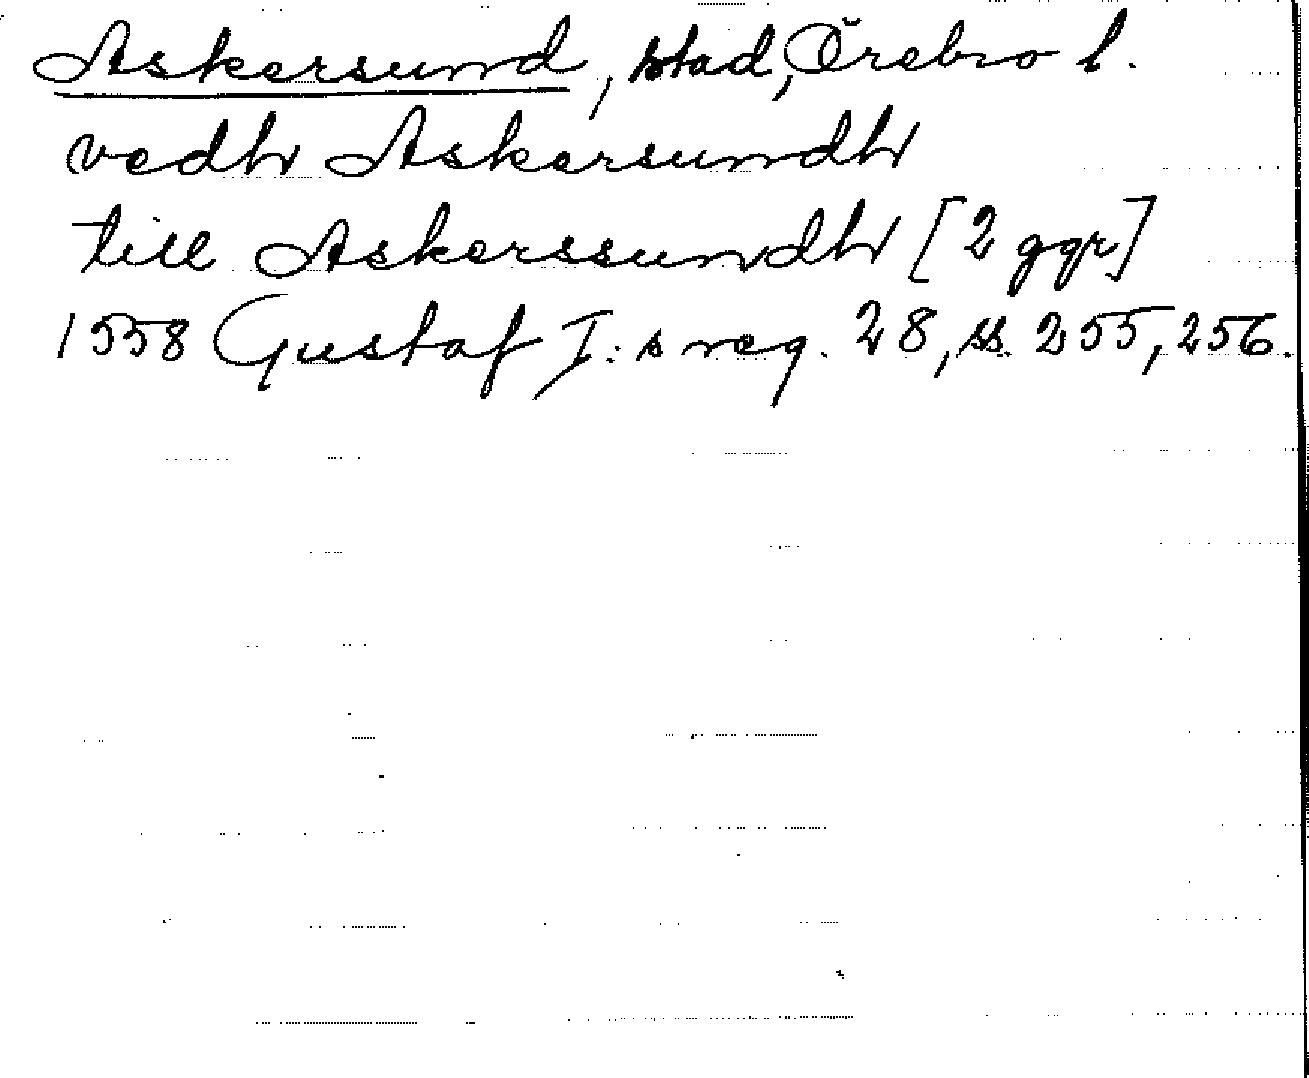 Askersund, stad, Örebro l.
vedh Askersundh
till Askerssundh [2 ggr]
1558 Gustaf I:s reg. 28, ss. 255, 256.